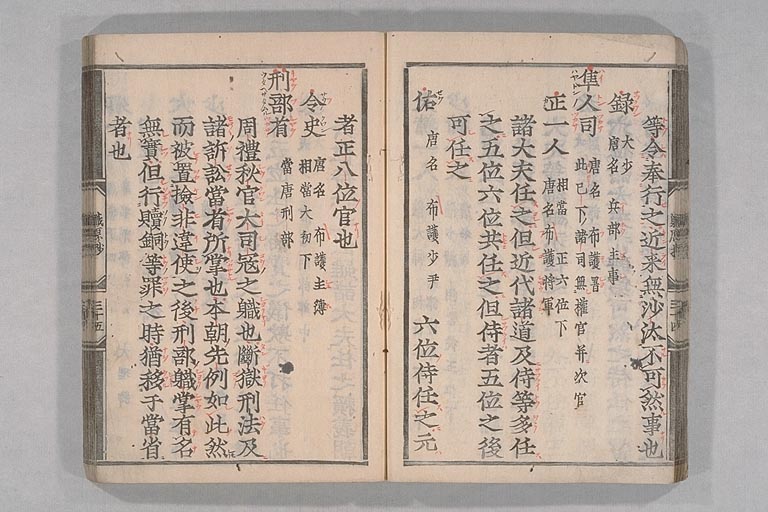 等令奉行之近来無沙汰不可然事也
録 大少 唐名兵部主事
隼人司 唐名布護署 此已下諸司無権官并次官
正一人 相當正六位下 唐名布護将軍
諸大夫任之但近代諸道及侍等多任
之五位六位共任之但侍者五位之後
可任之
佑 唐名布護少尹 六位侍任之元
者正八位官也
令史 唐名布護主簿 相當大初下
刑部省 當唐刑部
周禮秋官大司冦之職也斷獄刑法及
諸訴訟當省所掌也本朝先例如此然
而被置撿非違使之後刑部職掌有名
無實但行贖銅等罪之時猶移于當省
者也
職原抄